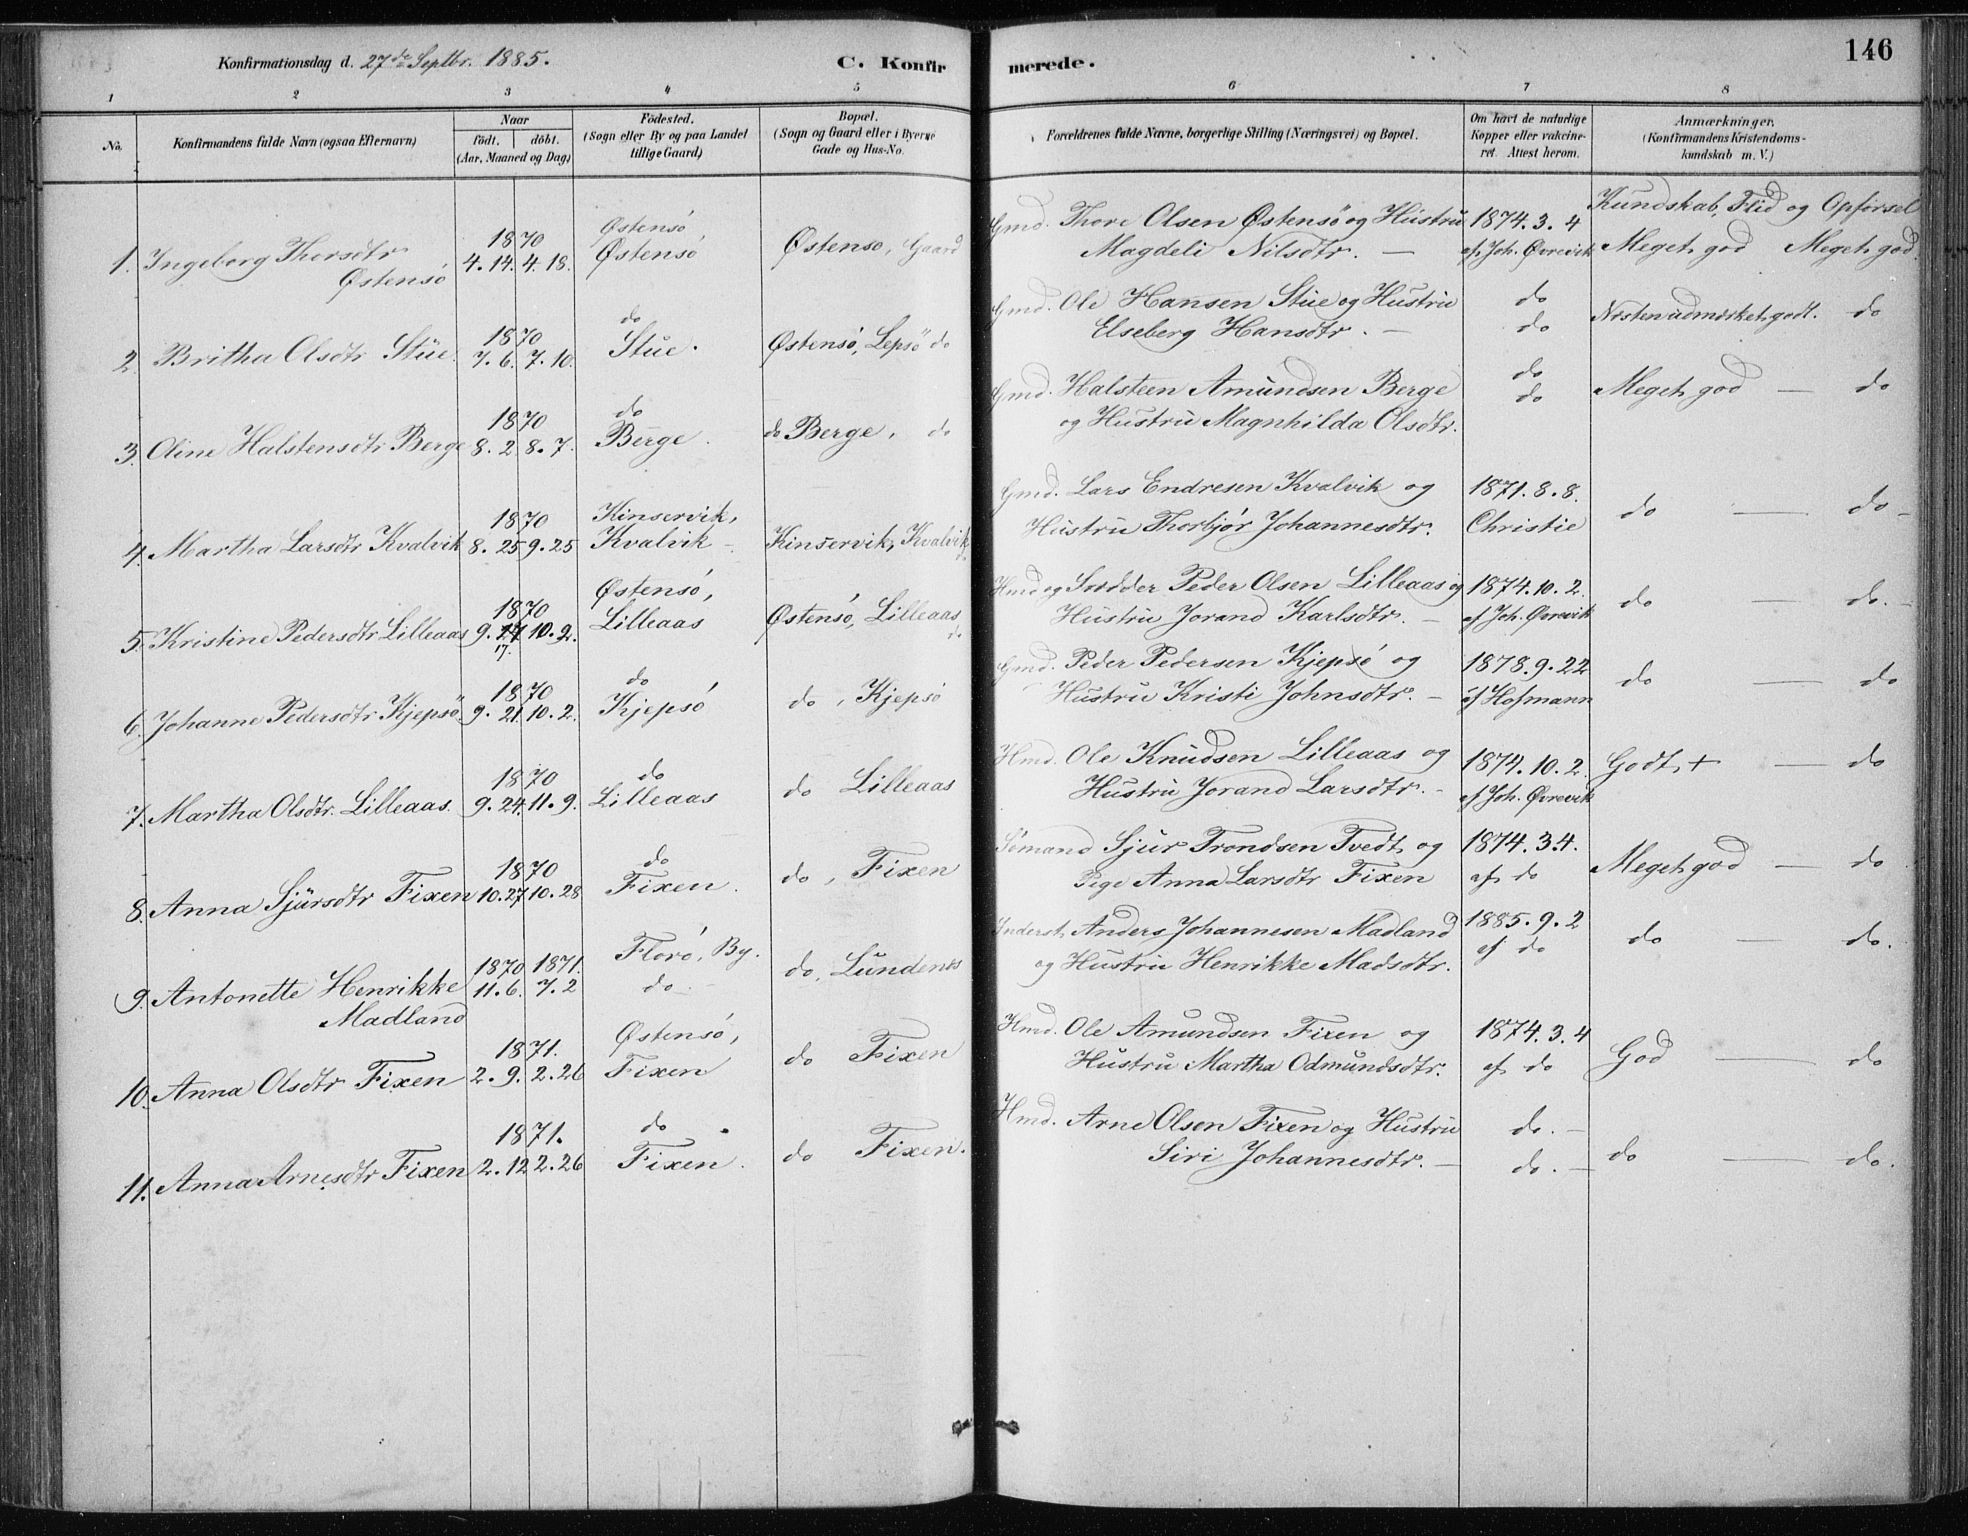 Konfirmationsdag d. 27de Septbr. 1885.
C. Konfirmerede.
146
1 2 3 4 5 6 7 8
No.
Konfirmandens fulde Navn (ogsaa Efternavn)
Naar
födt. döbt.
(Aar, Maaned og Dag)
Födested.
(Sogn eller By og paa Landet
tillige Gaard)
Bopæl.
(Sogn og Gaard eller i Byerne
Gade og Hus-No.
Forældrenes fulde Navne, borgerlige Stilling (Næringsvei) og Bopæl.
Om havt de naturlige
Kopper eller vakcine-
ret. Attest herom.
Anmærkninger.
(Konfirmandens Kristendoms-
kundskab m. V.)
Kundskab, Flid og Opförsel
1. Ingeborg Thorsdtr
Östensö
1870
4. 14. 4. 18.
Östensö,
Östensö
Östensö, Gaard
Gmd. Thore Olsen Östensö og Hustru
Magdeli Nilsdtr. —
1874. 3. 4
af Joh. Øvrevik
Meget god Meget god.
2. Britha Olsdtr Stue.
1870
7. 6. 7. 10.
do
Stue.
Östensö, Lepsö do
Gmd. Ole Hansen Stue og Hustru
Elseberg Hansdtr. —
do
do
Næsten udmærket godt. do
3. Oline Halstensdtr Berge
1870
8. 2. 8. 7.
do
Berge.
do Berge, do
Gmd. Halsteen Amundsen Berge
og Hustru Magnhilda Olsdtr.
do
do
Meget god — do
4. Martha Larsdtr Kvalvik
1870
8. 25 9. 25
Kinservik,
Kvalvik
Kinservik, Kvalvik
do
Gmd. Lars Endresen Kvalvik og
Hustru Thorbjör Johannesdtr.
1871. 8. 8.
Christie
do — do
5. Kristine Pedersdtr Lilleaas
1870
9. 10. 2.
17.
Östensö,
Lilleaas
Östensö, Lilleaas
do
Hmd og Peder Olsen Lilleaas og
Hustru Jorand Karlsdtr. —
1874. 10. 2.
af Joh. Øvrevik
do — do.
6. Johanne Pedersdtr Kjepsö
1870
9. 21. 10. 2.
do
Kjepsö
do, Kjepsö
Gmd. Peder Pedersen Kjepsö og
Hustru Kristi Johnsdtr. —
1878. 9. 22
af Hofmann
do — do
7. Martha Olsdtr. Lilleaas.
1870
9. 24. 11. 9.
do
Lilleaas
do Lilleaas
Hmd. Ole Knudsen Lilleaas og
Hustru Jorand Larsdtr. —
1874. 10. 2.
af Joh. Øvrevik
Godt + — do
8. Anna Sjursdtr Fixen
1870
10. 27 10. 28
do
Fixen.
do, Fixen
Sömand Sjur Trondsen Tvedt og
Pige Anna Larsdtr Fixen
1874. 3. 4.
af do
Meget god — do
9. Antonette Henrikke
Madland
1870 1871.
11. 6. 7. 2
Florö, By.
do
do, Lundenes
Inderst. Anders Johannesen Madland
og Hustru Henrikke Madsdtr.
1885. 9. 2
af do
do — do.
10. Anna Olsdtr Fixen
1871.
2. 9. 2. 26
Östensö,
Fixen
do Fixen
Hmd. Ole Amundsen Fixen og
Hustru Martha Odmundsdtr.
1874. 3. 4
af do
God — do
11. Anna Arnesdtr Fixen
1871.
2. 12 2. 26
do
Fixen.
do Fixen.
Hmd. Arne Olsen Fixen og Hustru
Siri Johannesdtr. —
do. —
do. —
do — do.